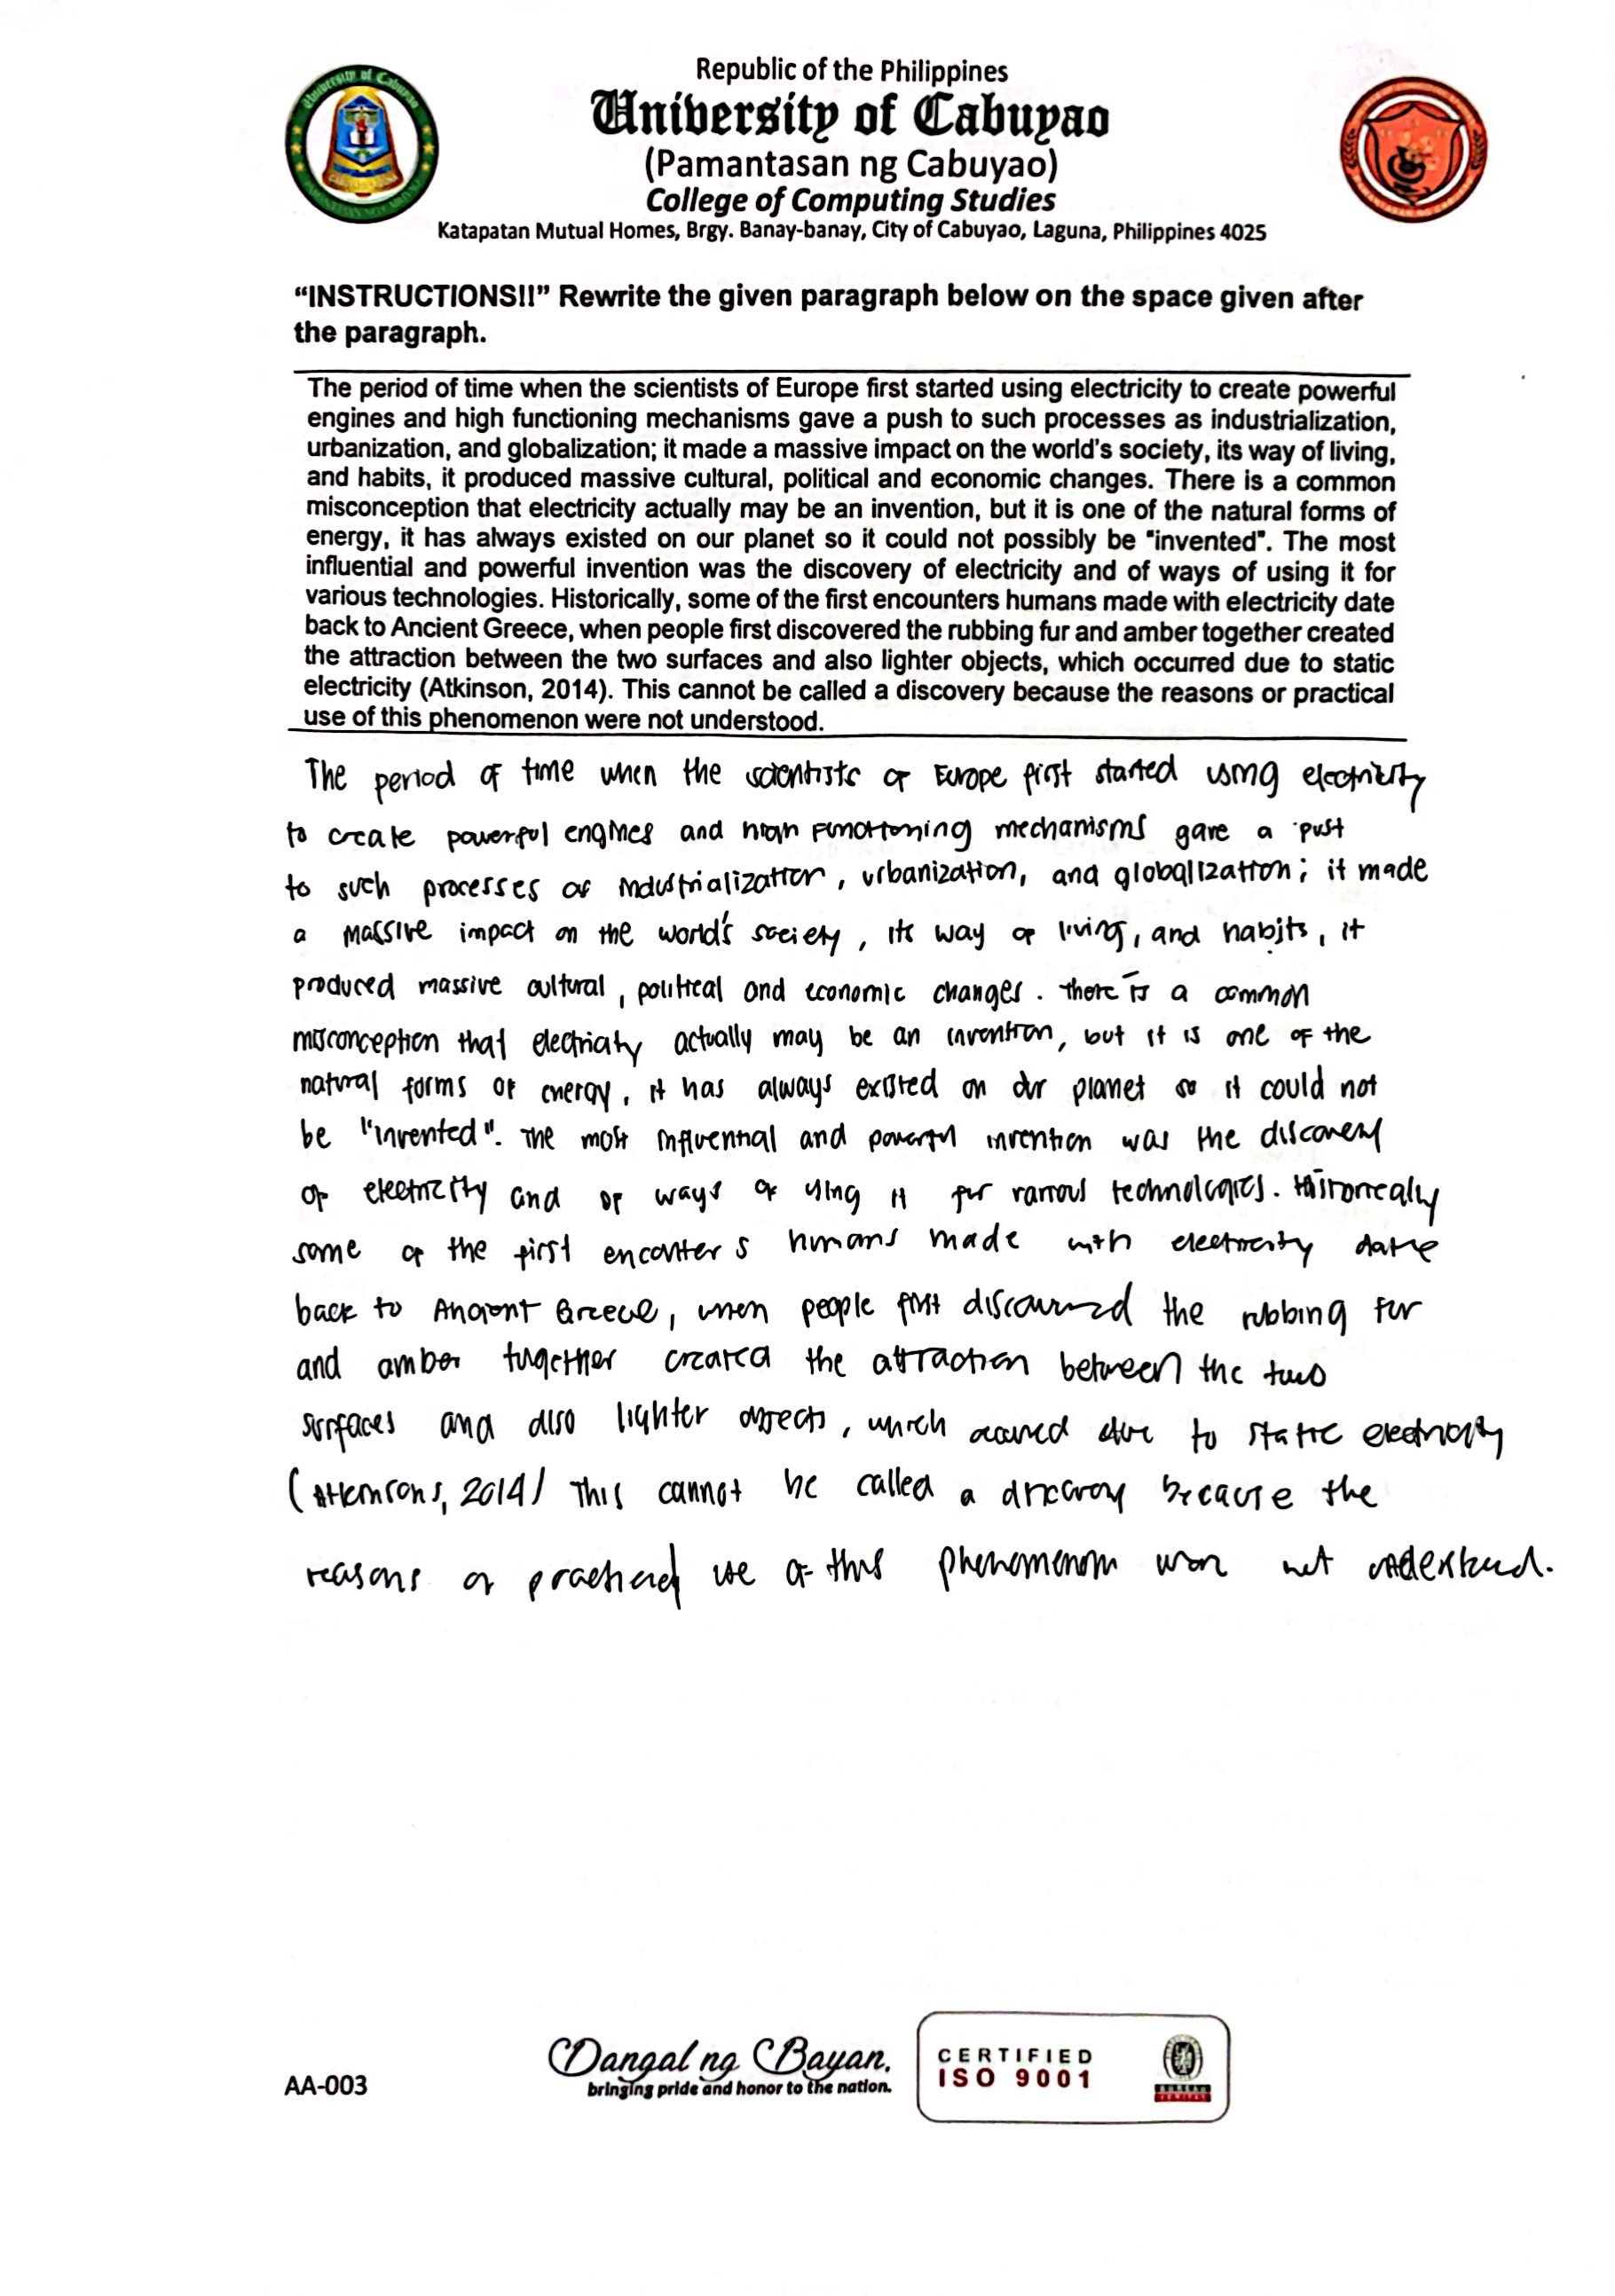 Republic of the Philippines
University of Cabuyao
(Pamantasan ng Cabuyao)
College of Computing Studies
Katapatan Mutual Homes, Brgy. Banay-banay, City of Cabuyao, Laguna, Philippines 4025
“INSTRUCTIONS!!” Rewrite the given paragraph below on the space given after
the paragraph.
The period of time when the scientists of Europe first started using electricity to create powerful
engines and high functioning mechanisms gave a push to such processes as industrialization,
urbanization, and globalization; it made a massive impact on the world's society, its way of living,
and habits, it produced massive cultural, political and economic changes. There is a common
misconception that electricity actually may be an invention, but it is one of the natural forms of
energy, it has always existed on our planet so it could not possibly be "invented". The most
influential and powerful invention was the discovery of electricity and of ways of using it for
various technologies. Historically, some of the first encounters humans made with electricity date
back to Ancient Greece, when people first discovered the rubbing fur and amber together created
the attraction between the two surfaces and also lighter objects, which occurred due to static
electricity (Atkinson, 2014). This cannot be called a discovery because the reasons or practical
use of this phenomenon were not understood.
The period of time when the scientists of Europe first started using electricity
to create powerful engines and high functioning mechanisms gave a push
to such processes as industrialization, urbanization, and globalization; it made
a massive impact on the world's society, its way of living, and habits, it
produced massive cultural, political and economic changes. There is a common
misconception that electricity actually may be an invention, but it is one of the
natural forms of energy, it has always existed on our planet so it could not
be "invented". The most influential and powerful invention was the discovery
of electricity and of ways of using it for various technologies. Historically
some of the first encounters humans made with electricity date
back to Ancient Greece, when people first discovered the rubbing fur
and amber together created the attraction between the two
surfaces and also lighter objects, which occured due to static electricity
(Atkinsons, 2014) This cannot be called a discovery because the
reasons or practical use of this phenomenom were not understood.
AA-003
Dangal ng Bayan.
bringing pride and honor to the nation.
CERTIFIED
ISO 9001